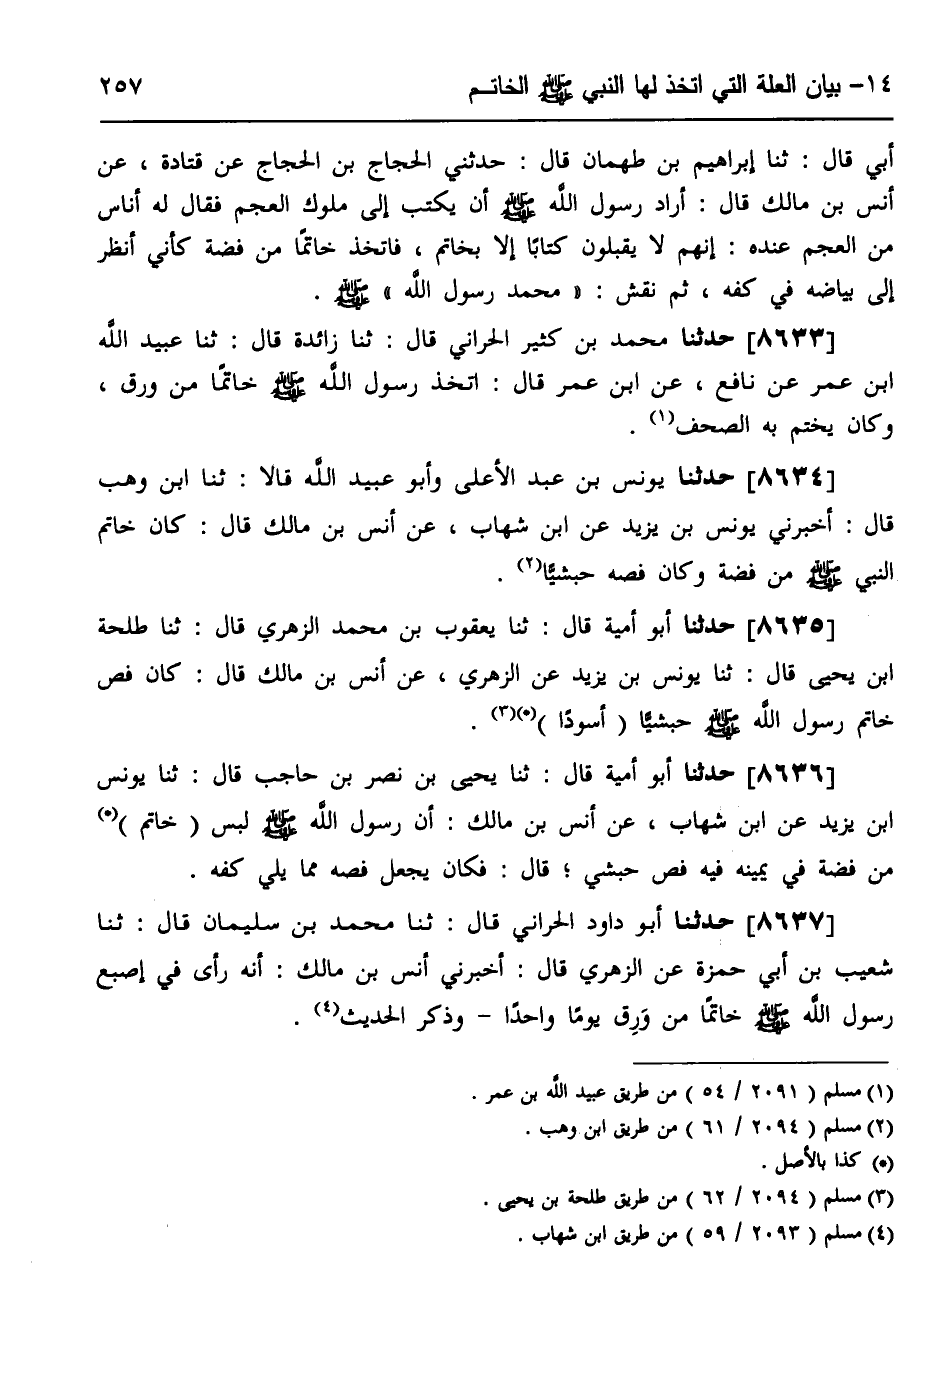 ١٤- بيان العلة التي اتخذ لها النبي ﷺ الخاتـم ٢٥٧
أبي قال : ثنا إبراهيم بن طهمان قال : حدثني الحجاج بن الحجاج عن قتادة ، عن
أنس بن مالك قال : أراد رسول اللَّه ﷺ أن يكتب إلى ملوك العجم فقال له أناس
من العجم عنده : إنهم لا يقبلون كتابًا إلا بخاتم ، فاتخذ خاتمًا من فضة كأني أنظر
إلى بياضه في كفه ، ثم نقش : « محمد رسول اللَّه » ﷺ .
[٨٦٣٣] حدثنا محمد بن كثير الحراني قال : ثنا زائدة قال : ثنا عبيد اللَّه
ابن عمر عن نافع ، عن ابن عمر قال : اتخذ رسول اللَّه ﷺ خاتمًا من ورق ،
وكان يختم به الصحف(١) .
[٨٦٣٤] حدثنا يونس بن عبد الأعلى وأبو عبيد اللَّه قالا : ثنا ابن وهب
قال : أخبرني يونس بن يزيد عن ابن شهاب ، عن أنس بن مالك قال : كان خاتم
النبي ﷺ من فضة وكان فصه حبشيًّا(٢) .
[٨٦٣٥] حدثنا أبو أمية قال : ثنا يعقوب بن محمد الزهري قال : ثنا طلحة
ابن يحيى قال : ثنا يونس بن يزيد عن الزهري ، عن أنس بن مالك قال : كان فص
خاتم رسول اللَّه ﷺ حبشيًّا ( أسودًا )(*)(٣) .
[٨٦٣٦] حدثنا أبو أمية قال : ثنا يحيى بن نصر بن حاجب قال : ثنا يونس
ابن يزيد عن ابن شهاب ، عن أنس بن مالك : أن رسول اللَّه ﷺ لبس ( خاتم )(*)
من فضة في يمينه فيه فص حبشي ؛ قال : فكان يجعل فصه مما يلي كفه .
[٨٦٣٧] حدثنا أبو داود الحراني قال : ثنا محمد بن سليمان قال : ثنا
شعيب بن أبي حمزة عن الزهري قال : أخبرني أنس بن مالك : أنه رأى في إصبع
رسول اللَّه ﷺ خاتمًا من وَرِق يومًا واحدًا - وذكر الحديث(٤) .
(١) مسلم ( ٢٠٩١ / ٥٤ ) من طريق عبيد اللَّه بن عمر .
(٢) مسلم ( ٢٠٩٤ / ٦١ ) من طريق ابن وهب .
(*) كذا بالأصل .
(٣) مسلم ( ٢٠٩٤ / ٦٢ ) من طريق طلحة بن يحيى .
(٤) مسلم ( ٢٠٩٣ / ٥٩ ) من طريق ابن شهاب .